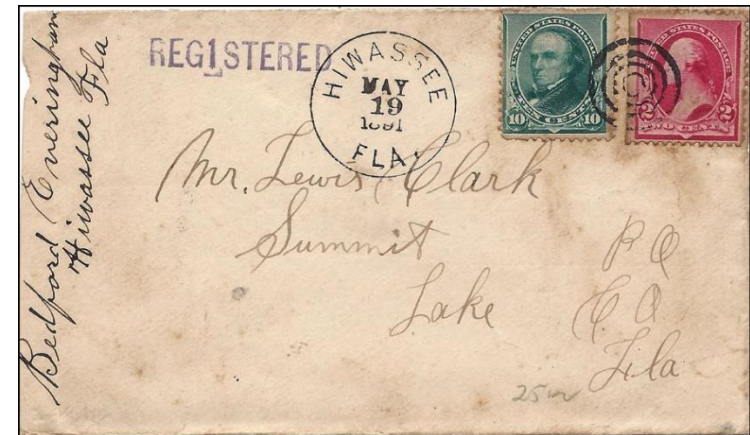 Bedford Everingham
Hiwassee Fla
REG1STERED
HIWASSEE
MAY
19
1891
FLA.
UNITED STATES POSTAGE
10 10
TEN CENTS
UNITED STATES POSTAGE
2 2
TWO CENTS
Mr. Lewis Clark
Summit P O
Lake C O
Fla